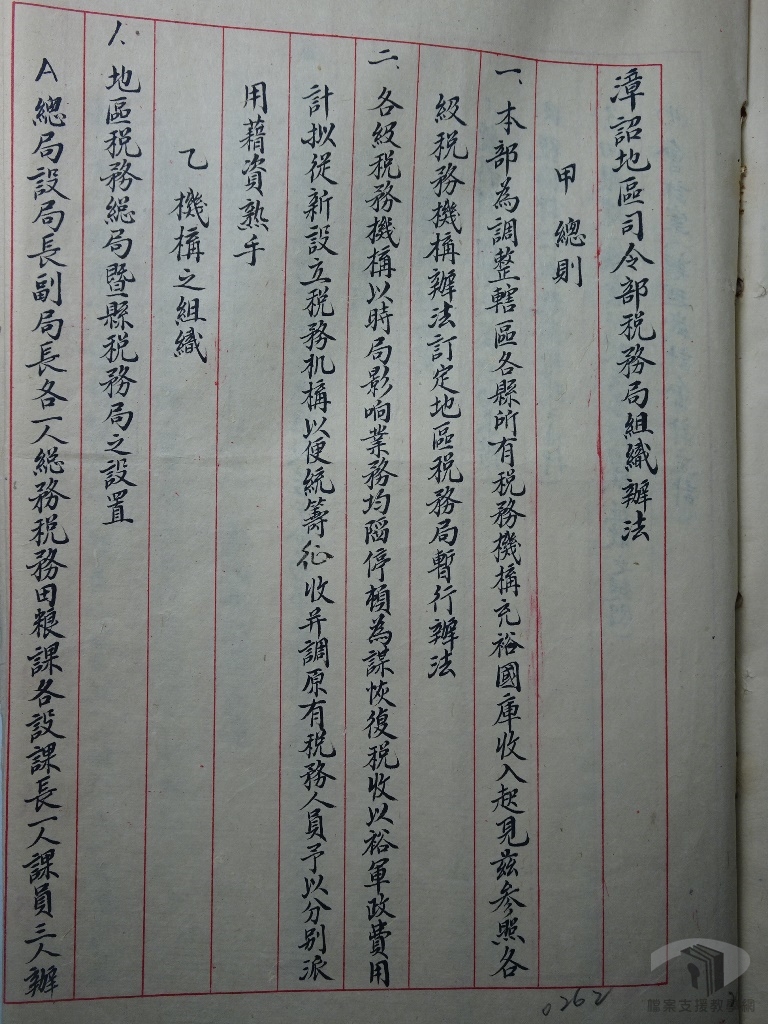 漳詔地區司令部稅務局組織辦法
甲 總則
一、本部為調整轄區各縣所有稅務機構充裕國庫收入起見茲參照各
級稅務機構辦法訂定地區稅務局暫行辦法
二、各級稅務機構以時局影响業務均陷停頓為謀恢復稅收以裕軍政費用
計拟從新設立稅務机構以便統籌征收并調原有稅務人員予以分別派
用藉資熟手
乙 機構之組織
1、地區稅務總局暨縣稅務局之設置
A 總局設局長副局長各一人総務稅務田粮課各設課長一人課員三人辦
0262
檔案支援教學網